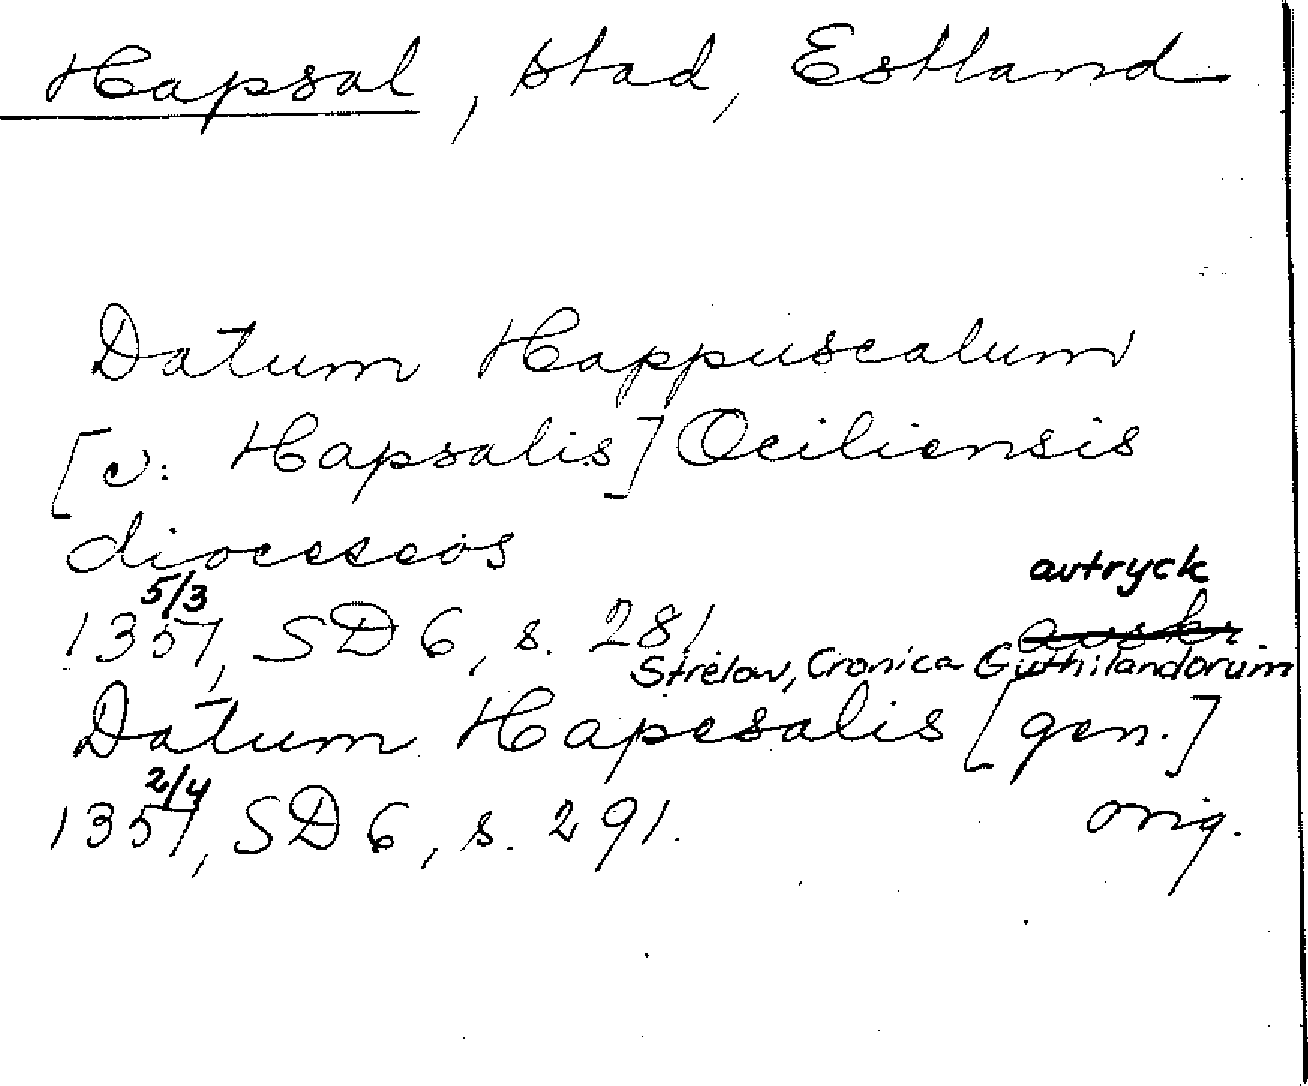 Hapsal, stad, Estland
Datum Happuscalum
[v: Hapsalis] Ociliensis
dioceseos
5/3 avtryck
1357, SD 6, s. 281 avskr.
Strelow, Cronica Guthilandorum
Datum Hapesalis [gen.]
2/4
1357, SD 6, s. 291. orig.